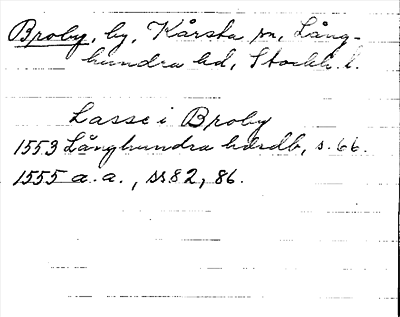 Broby, by, Kårsta sn, Lång-
hundra hd, Stockh. l.
Lasse i Broby
1553 Långhundra hdsdb, s. 66.
1555 a. a., ss 82, 86.